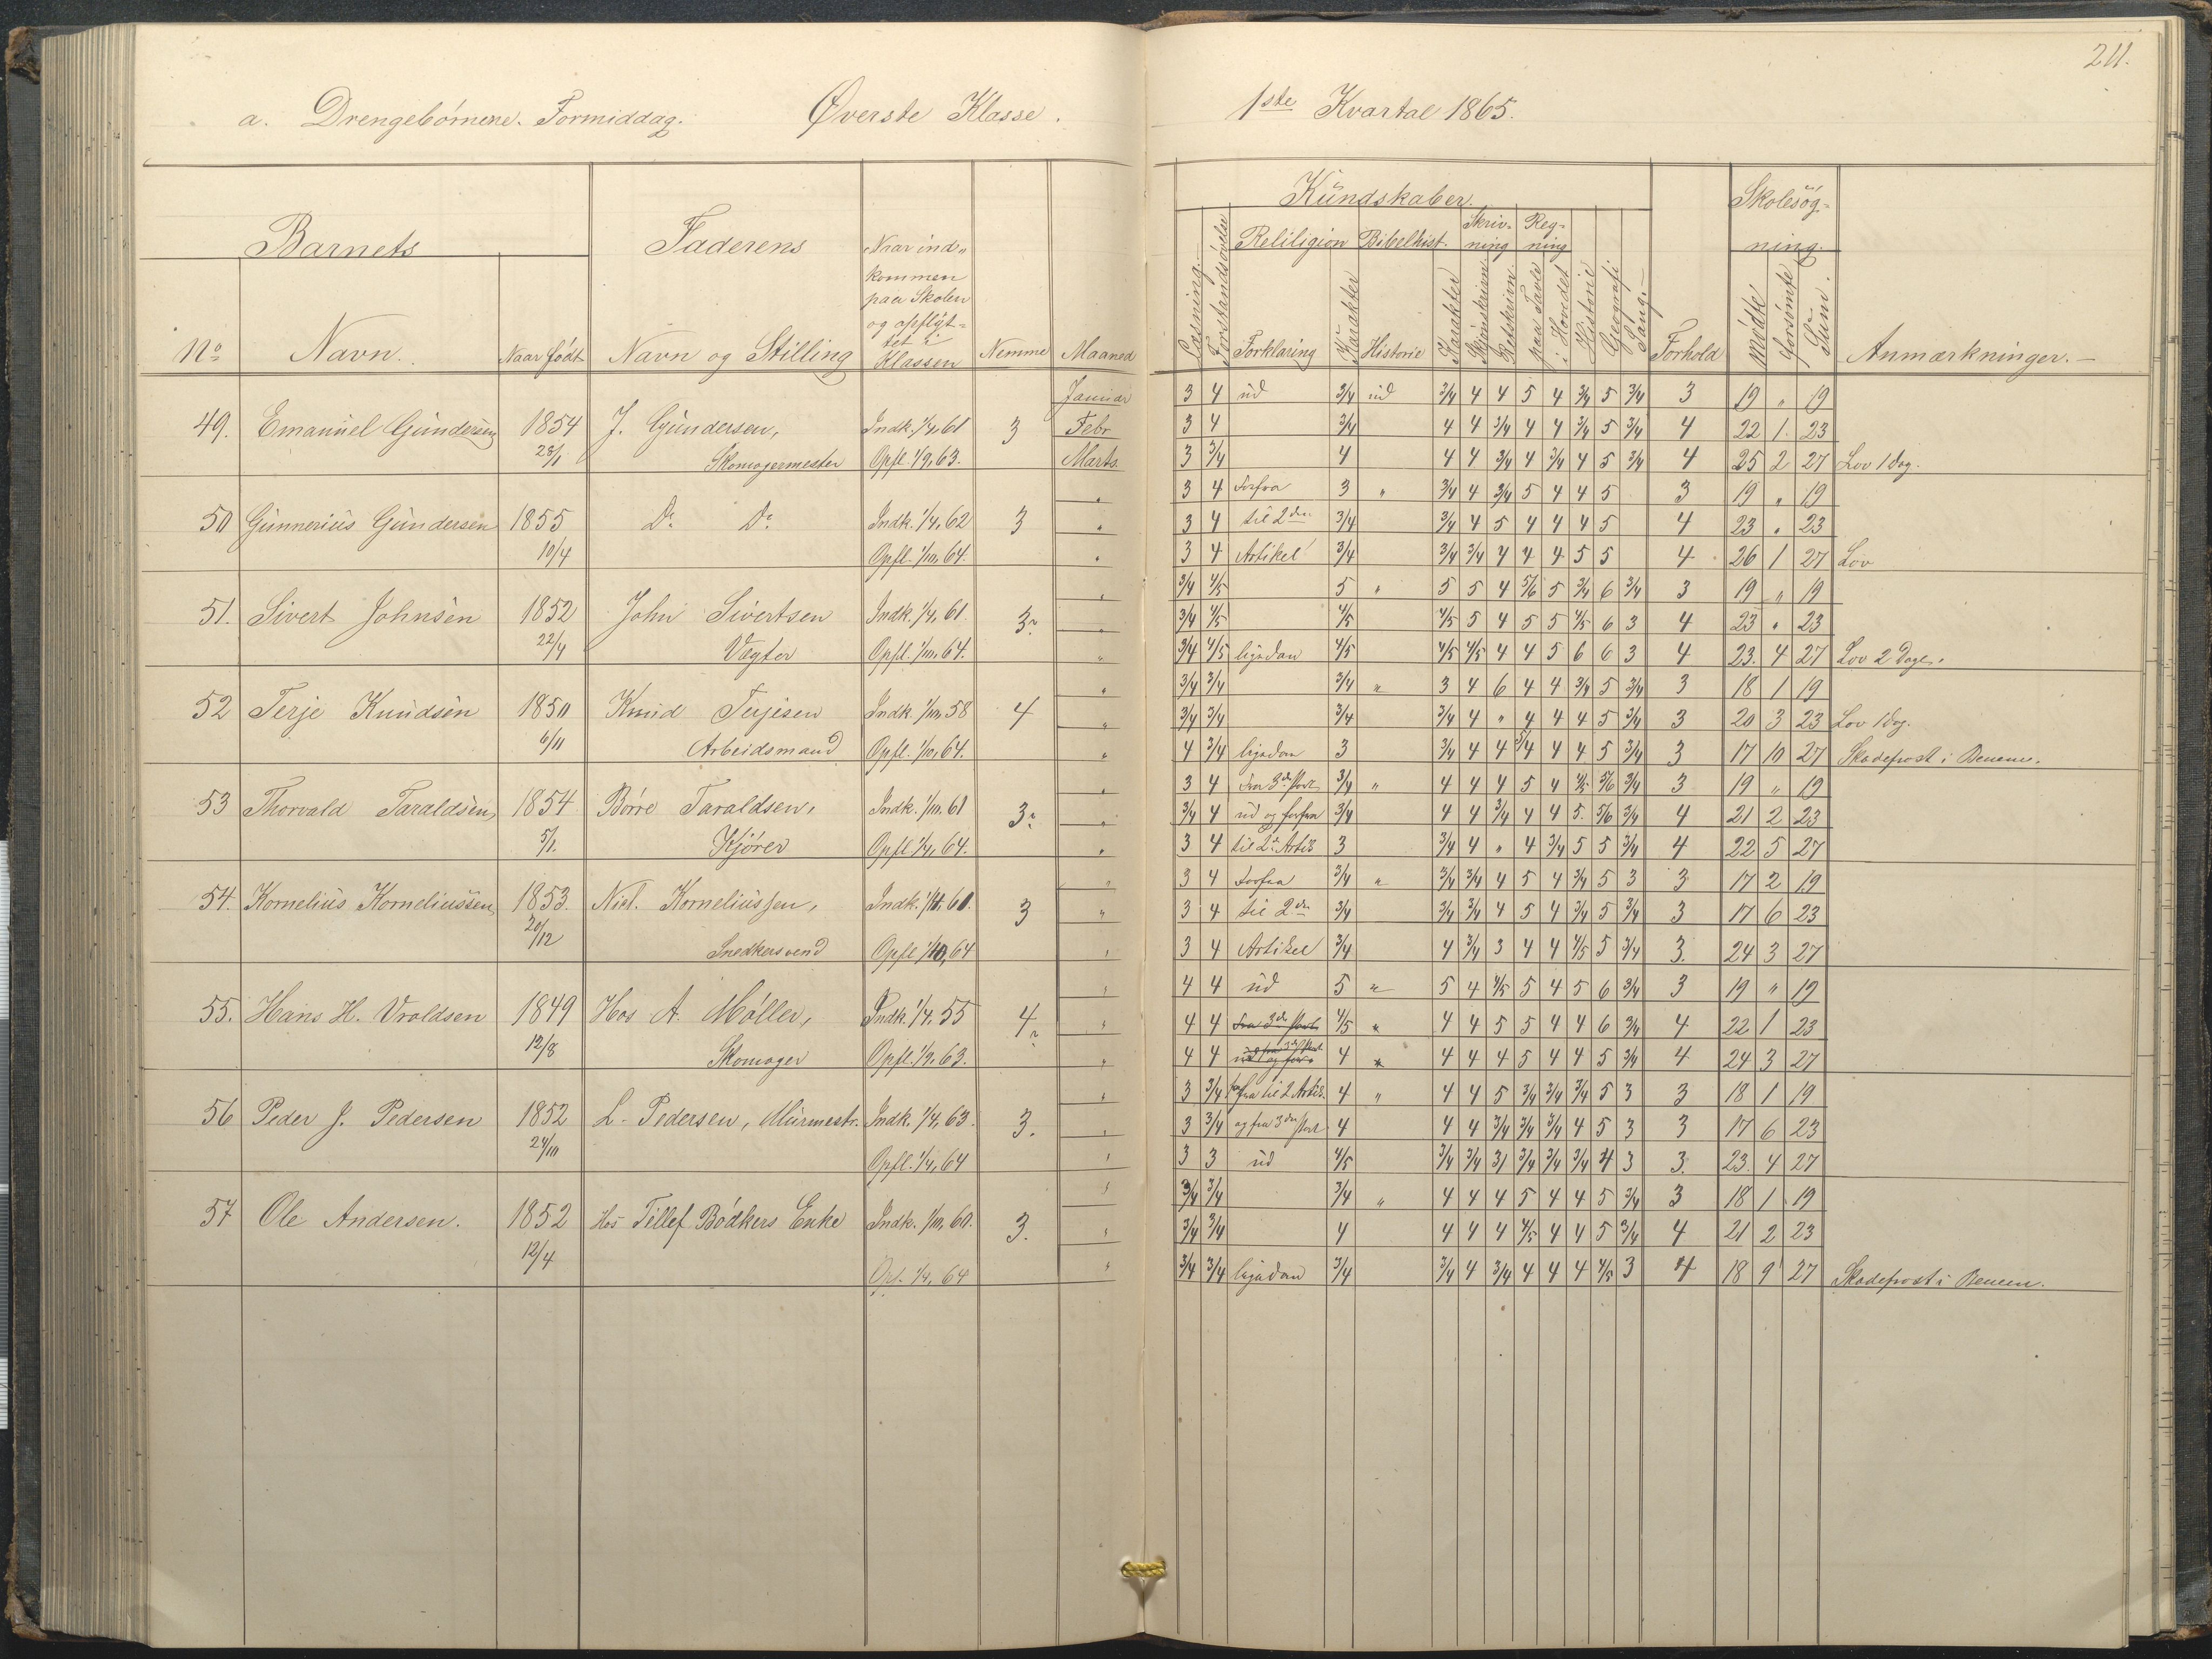 211.
a. Drengebörnene. Formiddag. Øverste Klasse. 1ste Kvartal 1865.
Barnets Faderens Naar ind- Kundskaber. Skolesög-
kommen Læsning. Forstandsøvelse Reliligion Bibelhist. Skriv- Reg- ning.
paa Skolen ning ning
og opflyt-
tet i
No Navn. Naar født Navn og Stilling Klassen Nemme Maaned Forklaring Karakter Historie Karakter Skjönskrivn. Retskrivn. paa Tavle i Hovedet Historie Geografi Sang. Forhold Mødte forsømte Sum. Anmærkninger.
Januar 3 4 ud 3/4 ud 3/4 4 4 5 4 3/4 5 3/4 3 19 " 19
49. Emanuel Gundersen 1854 J. Gundersen, Indk. 1/4, 61 3 Febr 3 4 3/4 4 4 3/4 4 4 3/4 5 3/4 4 22 1. 23
28/1 Skomagermester Opfl. 1/9, 63. Marts. 3 3/4 4 4 4 3/4 4 3/4 4 5 3/4 4 25 2 27 Lov 1 dag.
" 3 4 Forfra 3 " 3/4 4 3/4 5 4 4 5 3 19 " 19
50 Gunnerius Gundersen 1855 Do Do Indk. 1/4, 62 3 " 3 4 til 2den 3/4 3/4 4 5 4 4 4 5 4 23 " 23
10/4 Opfl. 1/10, 64. " 3 4 Artikel 3/4 3/4 3/4 4 4 4 5 5 4 26 1 27 Lov
" 3/4 4/5 5 " 5 5 4 5/6 5 3/4 6 3/4 3 19 " 19
51. Sivert Johnsen 1852 John Sivertsen Indk. 1/4, 61. 3. " 3/4 4/5 4/5 4/5 5 4 5 5 4/5 6 3 4 23 " 23
22/4 Vægter Opfl. 1/10, 64. " 3/4 4/5 ligedan 4/5 4/5 4/5 4 4 5 6 6 3 4 23. 4 27 Lov 2 Dage.
" 3/4 3/4 3/4 " 3 4 6 4 4 3/4 5 3/4 3 18 1 19
52 Terje Knudsen 1850 Knud Terjesen Indk. 1/10, 58 4 " 3/4 3/4 3/4 3/4 4 " 4 4 4 5 3/4 3 20 3 23 Lov 1 dag.
6/11 Arbeidsmand Opfl. 1/10, 64. " 4 3/4 ligedan 3 3/4 4 4 3/4 4 4 5 3/4 3 17 10 27 Skadefrost i Benene.
" 3 4 Fra 3de Part 3/4 " 4 4 4 5 4 4/5 5/6 3/4 3 19 " 19
53 Thorvald Taraldsen, 1854 Börre Taraldsen, Indk. 1/10, 61 3. " 3/4 4 ud og forfra 3/4 4 4 3/4 4 4 5. 5/6 3/4 4 21 2 23
5/1. Kjörer Opfl. 1/4, 64. " 3 4 til 2. Artik 3 3/4 4 " 4 3/4 5 5 3/4 4 22 5 27
" 3 4 Forfra 3/4 " 3/4 3/4 4 5 4 3/4 5 3 3 17 2 19
54. Kornelius Korneliussen, 1853. Niel. Korneliussen, Indk. 60. 3 " 3 4 til 2den 3/4 3/4 3/4 4 5 4 3/4 5 3/4 3 17 6 23
20/12 Snedkersvend Opfl 1/10, 64 " 3 4 Artikel 3/4 4 3/4 3 4 4 4/5 5 3/4 3. 24 3 27
" 4 4 ud 5 " 5 4 4/5 5 4 5 6 3/4 3 19 " 19
55. Hans H. Vroldsen 1849 Hos A. Möller, Indk. 1/4, 55 4. " 4 4 Fra 3de Part 4/5 " 4 4 5 5 4 4 6 3/4 4 22 1 23
12/8 Skomager Opfl. 1/9. 63. " 4 4 4 " 4 4 4 5 4 4 5 3/4 4 24 3 27
" 3 3/4 forfra til 2 Artik. 4 " 4 4 5 3/4 3/4 3/4 5 3 3 18 1 19
56 Peder J. Pedersen 1852 L. Pedersen, Murmestr. Indk. 1/4, 63. 3. " 3 3/4 og fra 3den Part 4 4 4 3/4 3/4 3/4 4 5 3 3 17 6 23
24/10 Opfl. 1/4, 64 " 3 3 ud 4/5 3/4 3/4 3/ 3/4 3/4 3/4 4 3 3. 23. 4 27
" 3/4 3/4 3/4 " 4 4 4 5 4 4 5 3/4 3 18 1 19
57 Ole Andersen. 1852 Hos Tellef Bödkers Enke Indk. 1/10, 60. 3. " 3/4 3/4 4 4 4 4 4/5 4 4 5 3/4 4 21 2 23
12/4 Opf. 1/4, 64 " 3/4 3/4 ligedan 3/4 3/4 4 3/4 4 4 4 4/5 3 4 18 9 27 Skadefrost i Benene.